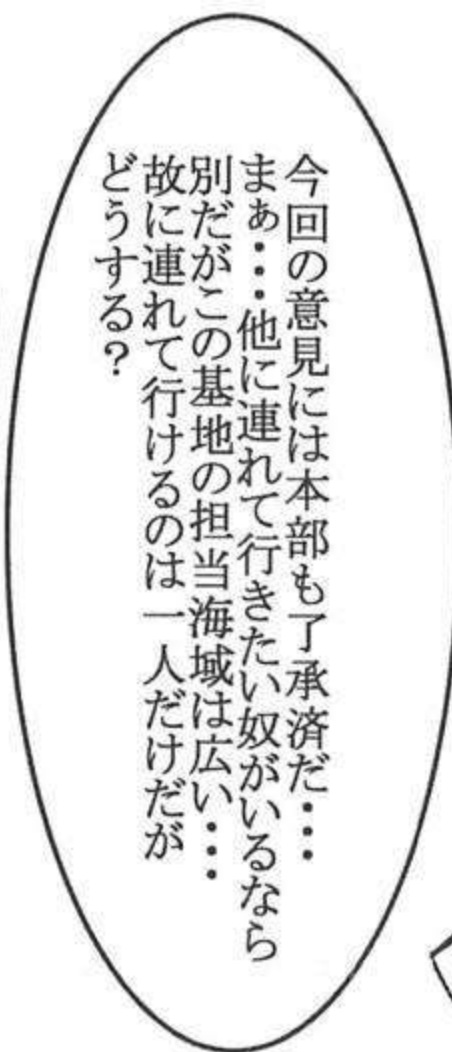 今回の意見には本部も了承済だ・・・
まぁ・・・他に連れて行きたい奴がいるなら
別だがこの基地の担当海域は広い・・・
故に連れて行けるのは一人だけだが
どうする？